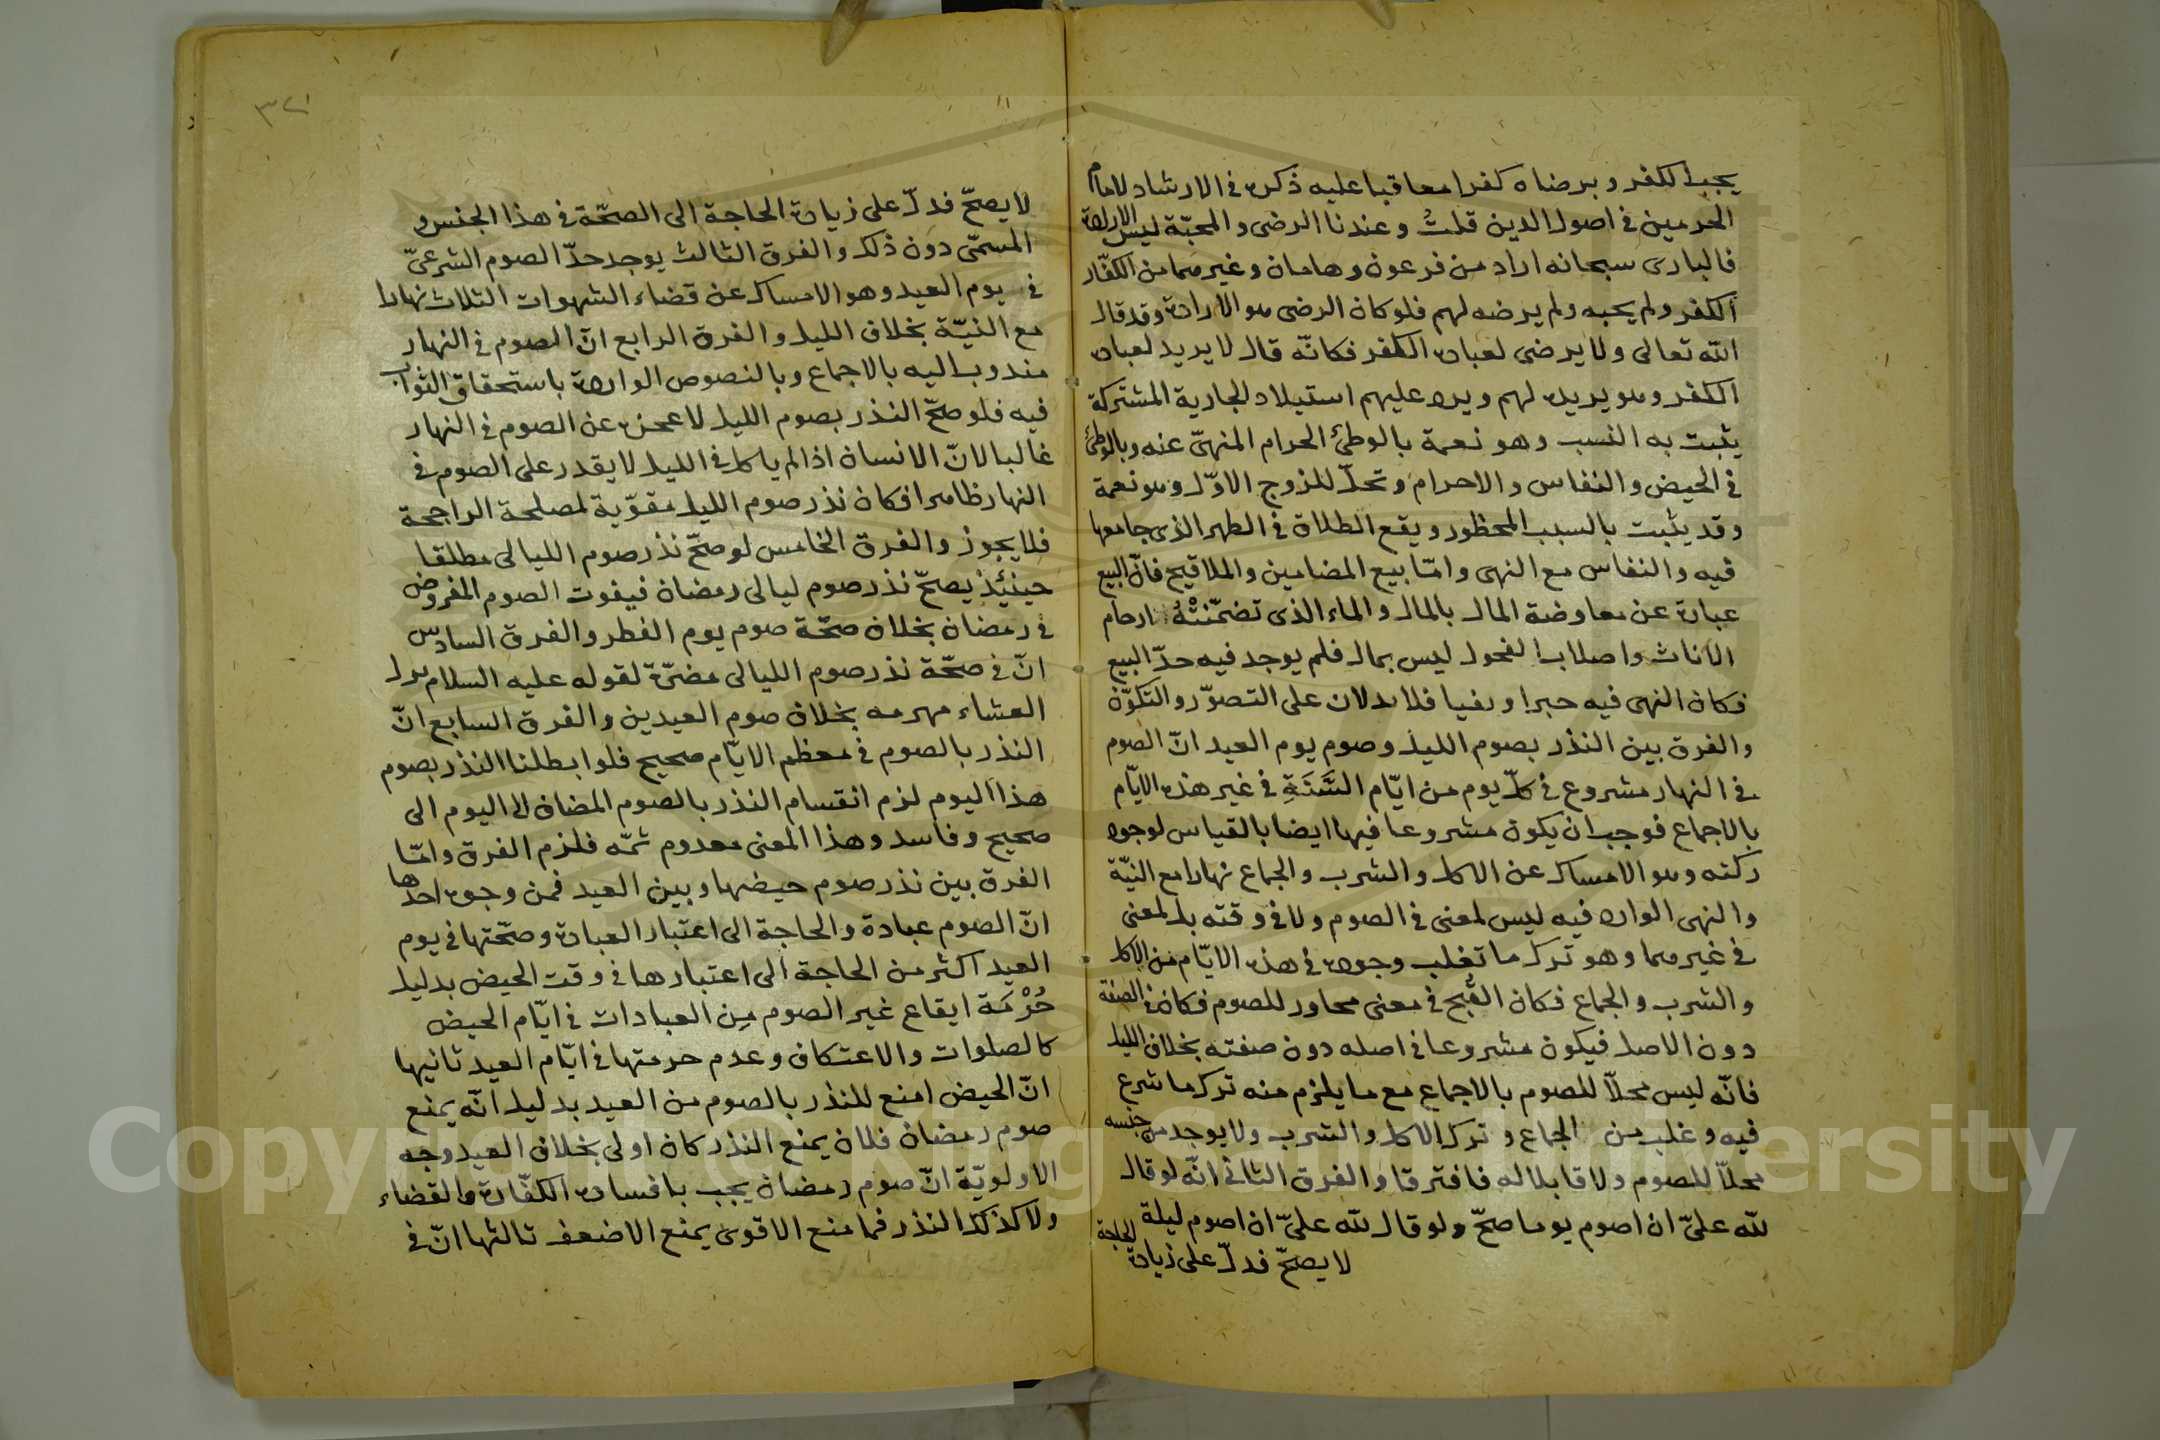 يحب الكفر ويرضاه كفرا معاقبا عليه ذكره في الارشاد لامام
الحرمين في اصول الدين قلتُ وعندنا الرضى والمحبّة ليس الارادة
فالبارى سبحانه اراد من فرعون وهامان وغيرهما من الكفّار
الكفر ولم يحبه ولم يرضه لهم فلو كان الرضى هو الارادة وقد قال
الله تعالى ولا يرضى لعباده الكفر فكانّه قال لا يريد لعباده
الكفر وهو يريده لهم ويرد عليهم استيلاد الجارية المشتركة
يثبت به النسب وهو نعمة بالوطئ الحرام المنهىّ عنه وبالوطئ
في الحيض والنفاس والاحرام وتحلّ للزوج الاوّل وهو نعمة
وقد يثبت بالسبب المحظور ويقع الطلاق في الطهر الذى جامعها
فيه والنفاس مع النهى وامّا بيع المضامين والملاقيح فانّ البيع
عبارة عن معاوضة المال بالمال والماء الذى تضمّنتْهُ ارحام
الاناث واصلاب الفحول ليس بمال فلم يوجد فيه حدّ البيع
فكان النهى فيه خبرا ونفيا فلا يدلان على التصوّر والتكوّن
والفرق بين النذر بصوم الليل وصوم يوم العيد انّ الصوم
في النهار مشروع في كلّ يوم من ايّام السَّنَةِ في غير هذه الايّام
بالاجماع فوجب ان يكون مشروعا فيها ايضا بالقياس لوجود
ركنه وهو الامساك عن الاكل والشرب والجماع نهارا مع النيّة
والنهى الوارد فيه ليس لمعنى في الصوم ولا في وقته بل لمعنى
في غيرهما وهو ترك ما تغلب وجوده في هذه الايّام من الاكل
والشرب والجماع فكان القُبح في معنى مجاور للصوم فكان في الصفة
دون الاصل فيكون مشروعا في اصله دون صفته بخلاف الليل
فانّه ليس محلّا للصوم بالاجماع مع ما يلزم منه ترك ما شرع
فيه وغلب من الجماع و ترك الاكل والشرب ولا يوجد من جنسه
محلّا للصوم ولا قابلا له فافترقا والفرق الثانى انّه لو قال
لله علىّ ان اصوم يوما صحّ ولو قال لله علىّ ان اصوم ليلة
لا يصحّ فدلّ على زيادة الحاجة
٣٢١
لا يصحّ فدلّ على زيادة الحاجة الى الصحّة في هذا الجنس و
المسمّى دون ذلك والفرق الثالث يوجد حدّ الصوم الشرعىّ
في يوم العيد وهو الامساك عن قضاء الشهوات الثلاث نهارا
مع النيّة بخلاف الليل والفرق الرابع انّ الصوم في النهار
مندوب اليه بالاجماع وبالنصوص الواردة باستحقاق الثواب
فيه فلو صحّ النذر بصوم الليل لاعجزه عن الصوم في النهار
غالبا لانّ الانسان اذا لم ياكل في الليل لا يقدر على الصوم في
النهار ظاهرا فكان نذر صوم الليل مفوّتة لمصلحة الراجحة
فلا يجوز والفرق الخامس لو صحّ نذر صوم الليالى مطلقا
حينئذ يصحّ نذر صوم ليالى رمضان فيفوت الصوم المفروض
في رمضان بخلاف صحّة صوم يوم الفطر والفرق السادس
انّ في صحّة نذر صوم الليالى مضرّة لقوله عليه السلام ترك
العشاء مهرمه بخلاف صوم العيدين والفرق السابع انّ
النذر بالصوم في معظم الايّام صحيح فلو ابطلنا النذر بصوم
هذا اليوم لزم انقسام النذر بالصوم المضاف الى اليوم الى
صحيح وفاسد وهذا المعنى معدوم ثمّه فلزم الفرق وامّا
الفرق بين نذر صوم حيضها وبين العيد فمن وجوه احدها
انّ الصوم عبادة والحاجة الى اعتبار العبادة وصحّتها في يوم
العيد اكثر من الحاجة الى اعتبارها في وقت الحيض بدليل
حُرْمَة ايقاع غير الصوم مِن العبادات في ايّام الحيض
كالصلوات والاعتكاف وعدم حرمتها في ايّام العيد ثانيها
انّ الحيض امنع للنذر بالصوم من العيد بدليل انّه يمنع
صوم رمضان فلان يمنع النذر كان اولى بخلاف العيد وجه
الاولويّة انّ صوم رمضان يجب بافساده الكفّارة والقضاء
ولا كذلك النذر فما منع الاقوى يمنع الاضعف ثالثها انّ في
Copyright © King Saud University